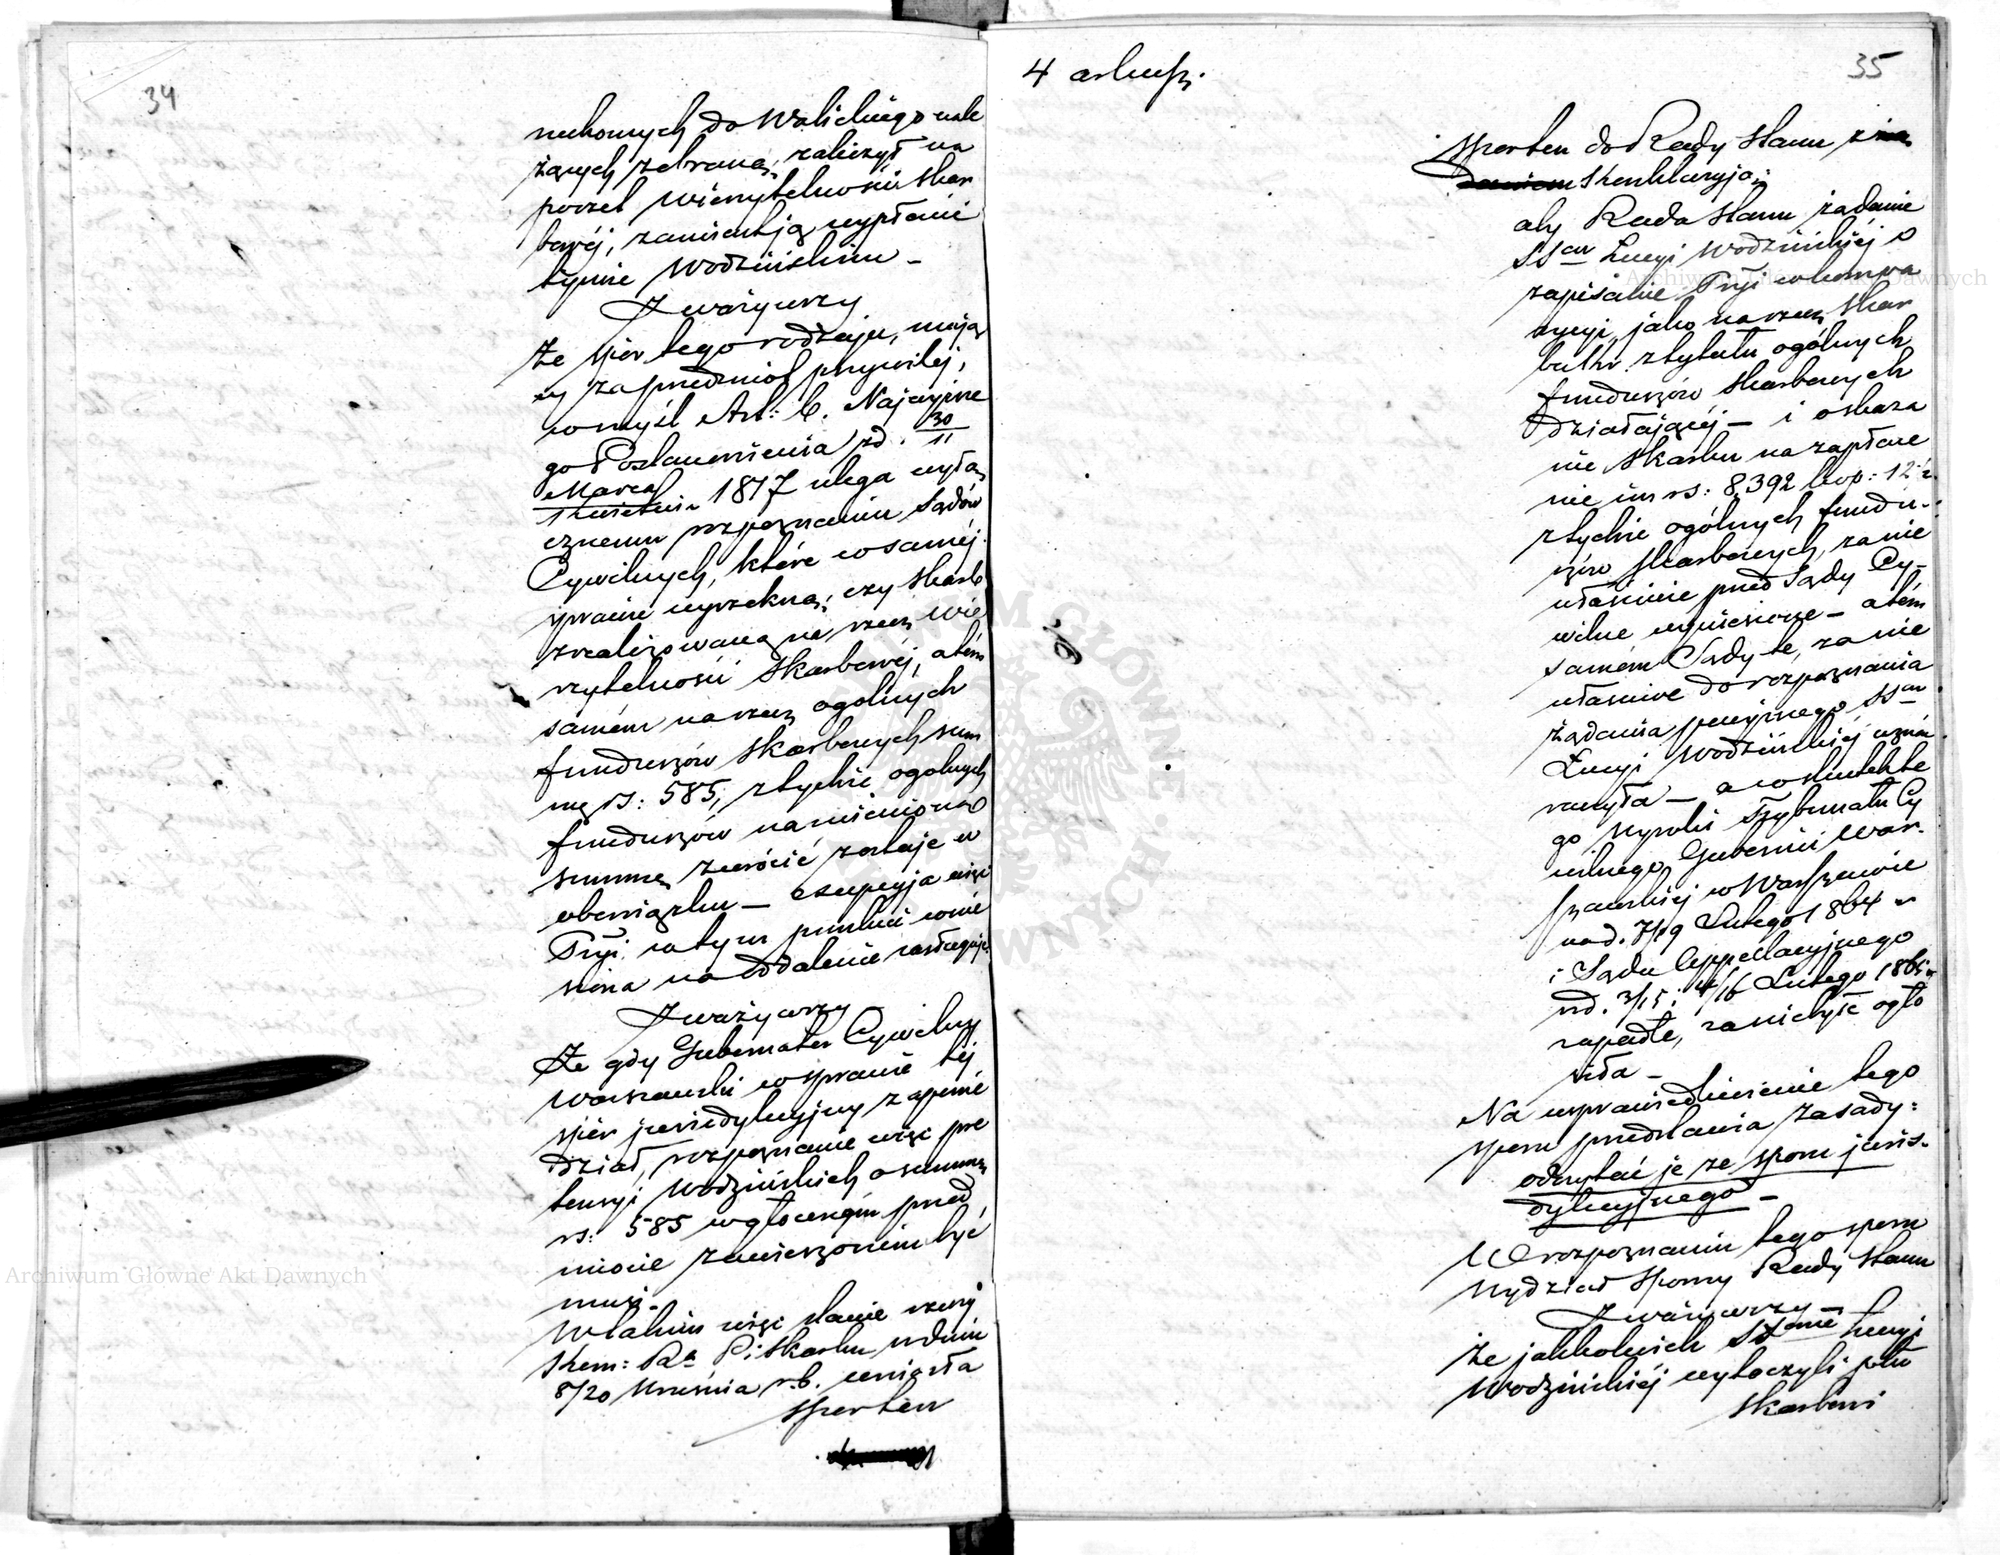 34
ruchomych do Walickiego nale
żących zebraną, zaliczył na
poczet wierzytelności skar
bowéj, zamiast ją wypłacić
tymże Wodzińskim —
Zważywszy
Że spór tego rodzaju, mają
cy za przedmiot przywiléj,
w myśl Art: 6. Najwyższe
go Postanowienia z d. 30/11
Marca/Kwietnia 1817 ulega wyłą
cznemu rozpoznaniu Sądów
Cywilnych, które w saméj
sprawie wyrzekną; czy Skarb
zrealizowaną na rzecz wie
rzytelności Skarbowéj, a tém
samém na rzecz ogólnych
funduszów Skarbowych sum
mę rs: 585, z tychże ogólnych
funduszów namienioną
summę zwrócić zostaje w
obowiązku — excepcyja więc
Pryi. w tym punkcie wnie
siona na oddalenie zasługuje.
Zważywszy
Że gdy Gubernator Cywilny
Warszawski w sprawie téj
spór jurisdykcyjny zapowie
dział, rozpoznanie więc pre
tensyi Wodzińskich o summę
rs: 585 w głównym przed
miocie zawieszoném być
musi.
W takim więc stanie rzeczy
Kom: Rz. P. i Skarbu w dniu
8/20 Września r. b. wniosła
spór ten
4 arkusz.
35
spór ten do Rady Stanu z
konkluzyją:
aby Rada Stanu żądanie
SSów Łucyi Wodzińskiéj o
zapisanie Pryi w kompa
rycyi, jako na rzecz Skar
bu tu z tytułu ogólnych
funduszów skarbowych
działającéj — i o skaza
nie Skarbu na zapłace
nie im rs: 8,392 kop: 12 ½.
z tychże ogólnych fundu-
szów skarbowych, za nie
właściwie przed Sądy Cy-
wilne wyniesione — a tém
samém Sądy te, za nie
właściwe do rozpoznania
żądania powyższego SSów
Łucyi Wodzińskiéj uzna
waryła — a w skutek te
go wyroki Trybunału Cy
wilnego Gubernii War-
szawskiéj w Warszawie
na d. 7/19 Lutego 1864 r.
i Sądu Appellacyjnego
na d. 3/15 i 4/16 Lutego 1865 r.
zapadłe, za niebyłe ogło
siła —
Na usprawiedliwienie tego
sporu przedstawia zasady:
odczytać je ze sporu juris-
dykcyjnego —
W rozpoznaniu tego sporu
Wydział Sporny Rady Stanu
Zważywszy —
Że jakkolwiek SSowie Łucyi
Wodzińskiéj wytoczyli prtko
Skarbowi